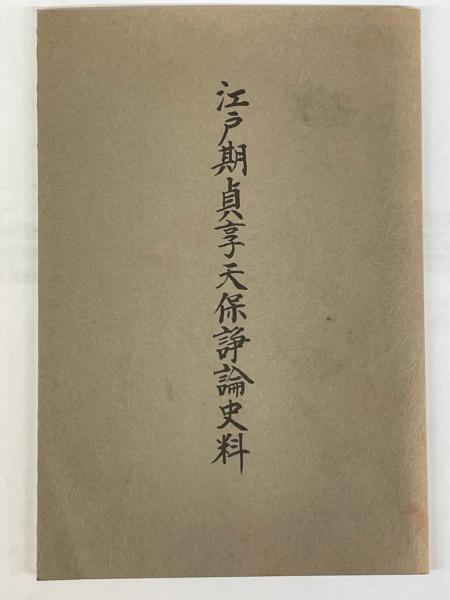 江戸期貞享天保諍論史料